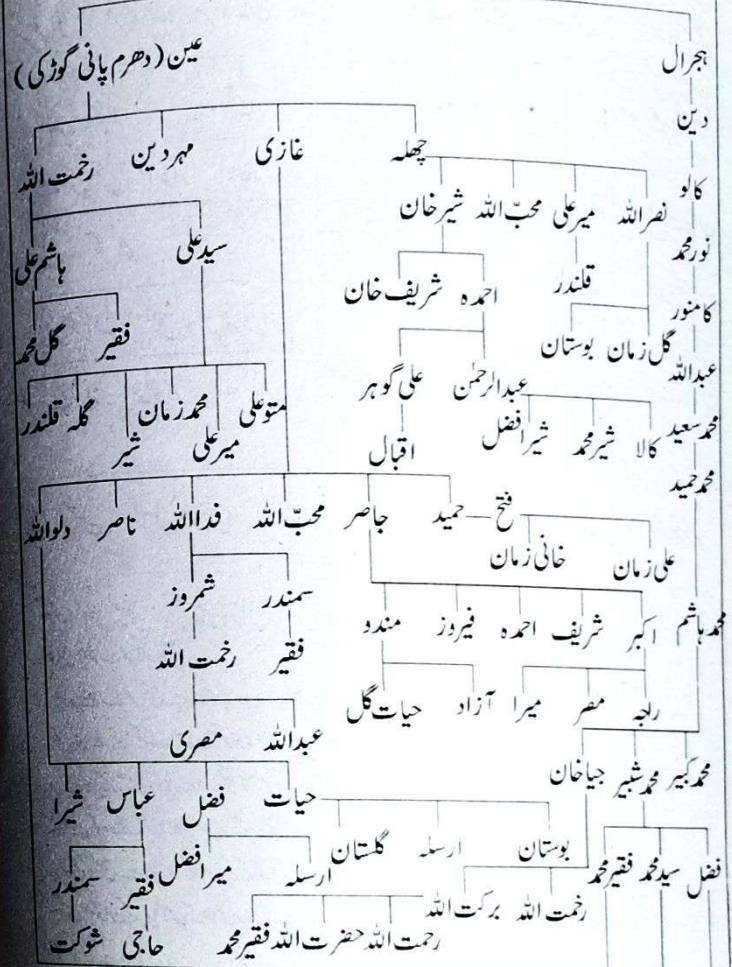 ہجرال عین (دھرم پانی گوڑکی)
دین
چھلہ غازی مہر دین رخمت اللہ
کالو
نصر اللہ میر علی محبّ اللہ شیر خان
نور محمد سید علی ہاشم علی
قلندر احمدہ شریف خان
کامنور
گل زمان بوستان فقیر گل محمد
عبداللہ
عبدالرحمٰن علی گوہر
متو علی محمد زمان گلہ قلندر
میر علی شیر
محمد سعید کالا شیر محمد شیرا فضل اقبال
محمد حمید
فتح حمید جاصر محبّ اللہ فدا اللہ ناصر دلو اللہ
علی زمان خانی زمان
سمندر شمروز
محمد ہاشم اکبر شریف احمدہ فیروز مندو
فقیر رخمت اللہ
راجہ مصر میرا آزاد حیات گل
عبداللہ مصری
محمد کبیر محمد شبیر جیا خان
حیات فضل عباس شیرا
بوستان ارسلہ گلستان
ارسلہ میرا فضل فقیر سمندر
فضل سید محمد فقیر محمد
رخمت اللہ برکت اللہ
رحمت اللہ حضرت اللہ فقیر محمد حاجی شوکت